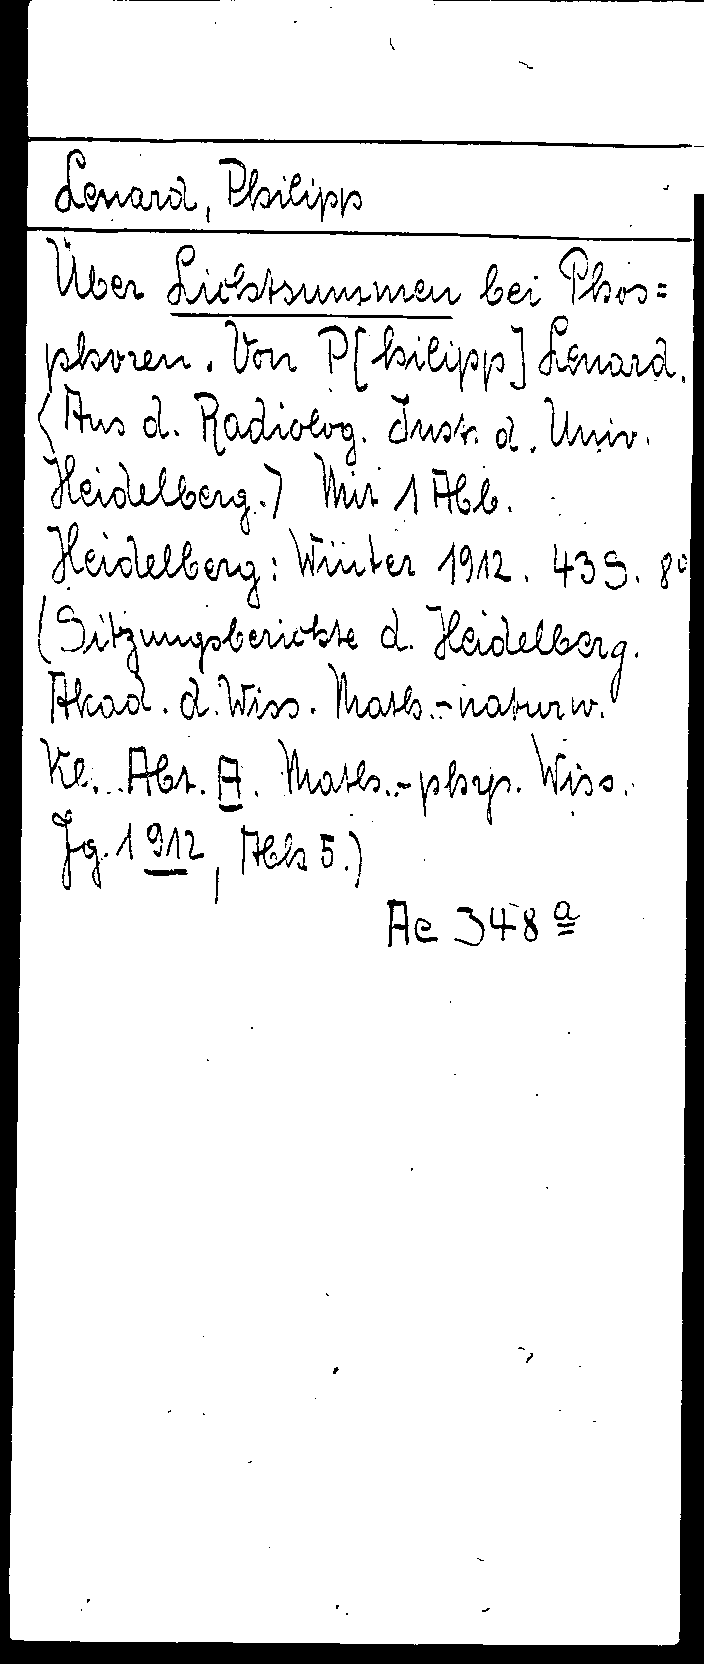 Lenard, Philipp
Über Lichtsummen bei Phos=
phoren. Von P[hilipp] Lenard.
<Aus d. Radiolog. Inst. d. Univ.
Heidelberg.> Mit 1 Abb.
Heidelberg: Winter 1912. 43 S. 8°
(Sitzungsberichte d. Heidelberg.
Akad. d. Wiss. Math.-naturw.
Kl. Abt. A. Math.-phys. Wiss.
Jg. 1912, Abh 5.)
Ac 348 a